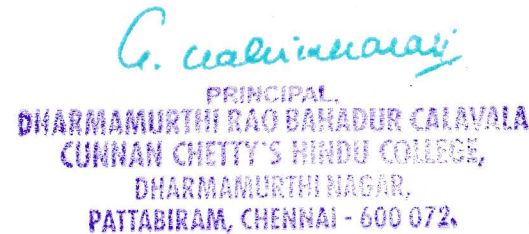 G.
PRINCIPAL,
DHARMAMURTHI RAO BAHADUR CALAVALA
CUNNAN CHETTY'S HINDU COLLEGE,
DHARMAMURTHI NAGAR,
PATTABIRAM, CHENNAI - 600 072.